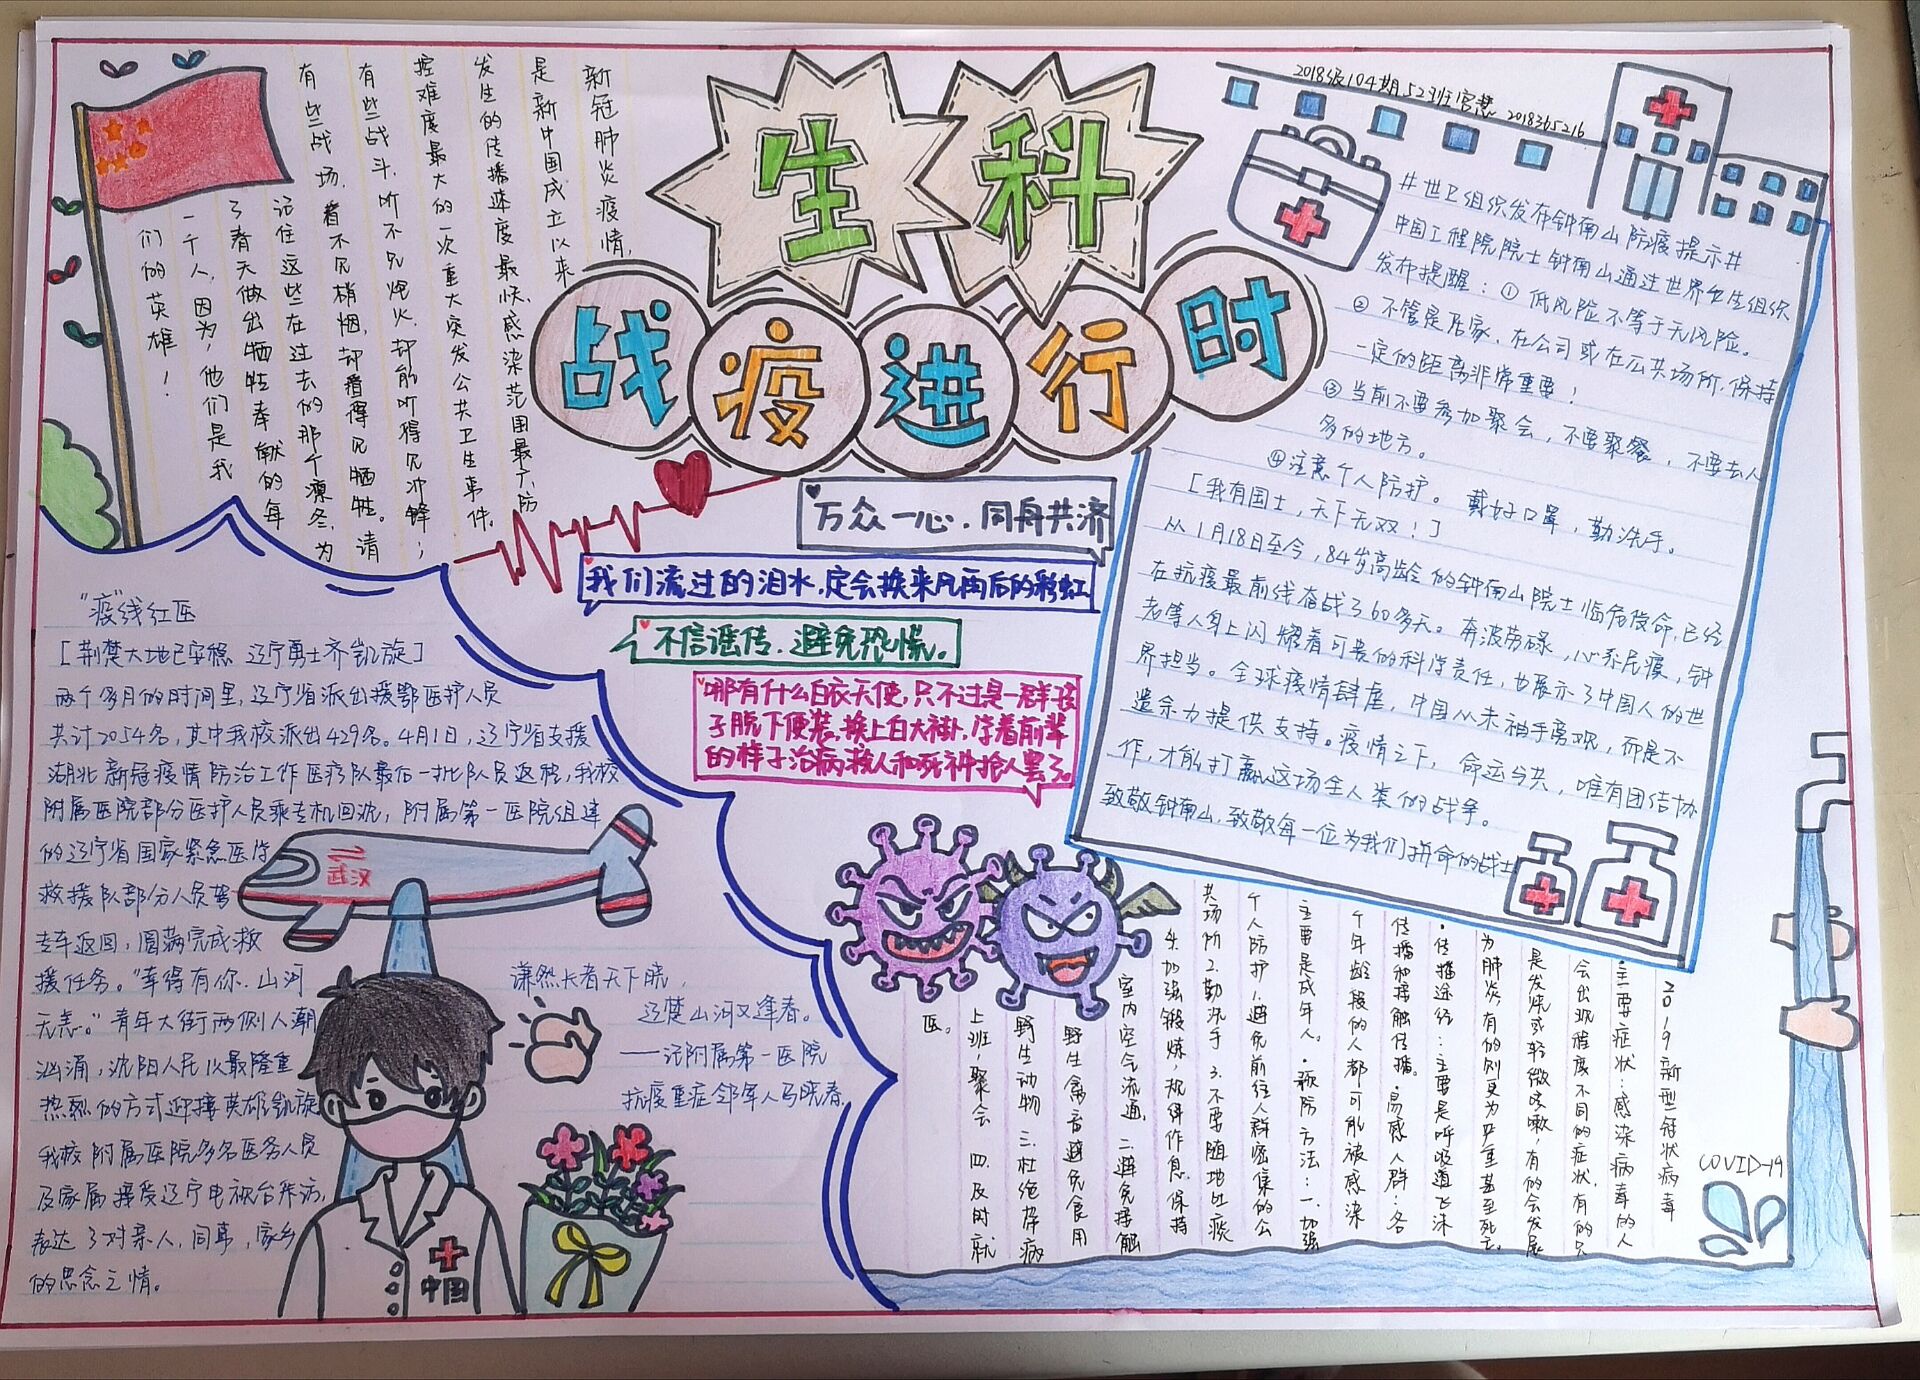 生科
战疫进行时
2018级104期52班宫慧 2018365216
新冠肺炎疫情，
是新中国成立以来
发生的传播速度最快，感染范围最广，防
控难度最大的一次重大突发公共卫生事件。
有些战斗，听不见炮火，却能听得见冲锋；
有些战场，看不见梢烟，却看得见牺牲。请
记住这些在过去的那个凛冬，为
了春天做出牺牲奉献的每
一个人，因为，他们是我
们的英雄！
万众一心，同舟共济
我们流过的泪水，定会换来风雨后的彩虹
不信谣传，避免恐慌。
哪有什么白衣天使，只不过是一群孩
子脱下便装，换上白大褂，学着前辈
的样子治病救人和死神抢人罢了。
#世卫组织发布钟南山防疫提示#
中国工程院院士钟南山通过世界卫生组织
发布提醒：①低风险不等于无风险。
②不管是居家、在公司或在公共场所，保持
一定的距离非常重要！
③当前不要参加聚会，不要聚餐，不要去人
多的地方。
④注意个人防护。戴好口罩，勤洗手。
[我有国士，天下无双！]
从1月18日至今，84岁高龄的钟南山院士临危受命，已经
在抗疫最前线奋战了60多天。奔波劳碌，心系民瘼，钟
老等人身上闪耀着可贵的科学责任，也展示了中国人的世
界担当。全球疫情肆虐，中国从未袖手旁观，而是不
遗余力提供支持。疫情之下，命运与共，唯有团结协
作，才能打赢这场全人类的战争。
致敬钟南山，致敬每一位为我们拼命的战士
"疫"线红医
[荆楚大地已安稳 辽宁勇士齐凯旋]
两个多月的时间里，辽宁省派出援鄂医护人员
共计2054名，其中我校派出429名。4月1日，辽宁省支援
湖北新冠疫情防治工作医疗队最后一批队员返程，我校
附属医院部分医护人员乘专机回沈，附属第一医院组建
的辽宁省国家紧急医学
救援队部分人员驾
专车返回，圆满完成救
援任务。"幸得有你，山河
无恙。"青年大街两侧人潮
汹涌，沈阳人民以最隆重
热烈的方式迎接英雄凯旋
我校附属医院多名医务人员
及家属接受辽宁电视台采访，
表达了对亲人，同事，家乡
的思念之情。
武汉
中国
潇然长者天下晓，
辽楚山河又逢春。
——记附属第一医院
抗疫重症领军人马晓春
2019新型冠状病毒
·主要症状：感染病毒的人
会出现程度不同的症状，有的只
是发烧或轻微咳嗽，有的会发展
为肺炎，有的则更为严重甚至死亡。
·传播途径：主要是呼吸道飞沫
传播和接触传播。·易感人群：各
个年龄段的人都可能被感染
主要是成年人。·预防方法：一、加强
个人防护 1.避免前往人群密集的公
共场所 2.勤洗手 3.不要随地吐痰
4.加强锻炼，规律作息，保持
室内空气流通。二、避免接触
野生禽畜避免食用
野生动物 三、杜绝带病
上班，聚会 四、及时就
医。
COVID-19